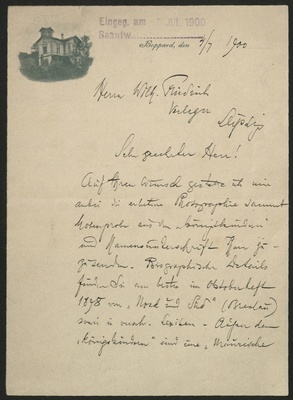 Eingeg. am Jul. 1900
Beantw.
Boppard, den 3/7 1900
Herrn Wilh. Friedrich
Verleger
Leipzig
Sehr geehrter Herr!
Auf Ihren Wunsch gestatte ich mir
anbei die erbetene Photographie sammt
Notenprobe aus den „Königskindern"
und Namensunterschrift Ihnen zu-
zusenden. Biographische Details
finden Sie am besten im Oktoberheft
1898 von „Nord und Süd" (Breslau)
sowie in versch. Lexiken. - Außer den
„Königskindern" sind eine „Maurische